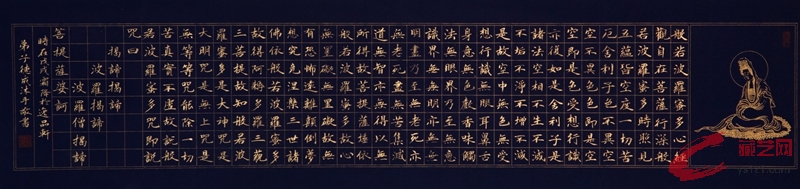 般若波羅蜜多心經
觀自在菩薩行深般
若波羅蜜多時照見
五蘊皆空度一切苦
厄舍利子色不異空
空不異色色即是空
空即是色受想行識
亦復如是舍利子是
諸法空相不生不滅
不垢不淨不增不減
是故空中無色無受
想行識無眼耳鼻舌
身意無色聲香味觸
法無眼界乃至無意
識界無無明亦無無
明盡乃至無老死亦
無老死盡無苦集滅
道無智亦無得以無
所得故菩提薩埵依
般若波羅蜜多故心
無罣礙無罣礙故無
有恐怖遠離顛倒夢
想究竟涅槃三世諸
佛依般若波羅蜜多
故得阿耨多羅三藐
三菩提故知般若波
羅蜜多是大神咒是
大明咒是無上咒是
無等等咒能除一切
苦真實不虛故說般
若波羅蜜多咒即說
咒曰
揭諦揭諦
波羅揭諦
波羅僧揭諦
菩提薩婆訶
時在戊戌於逸品軒
弟子沐手敬書